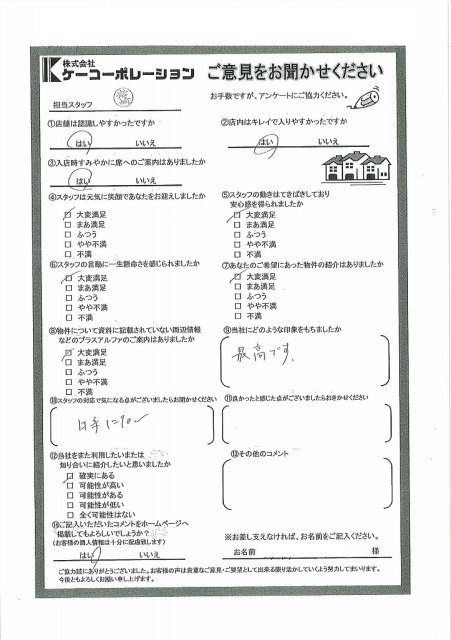 株式会社
ケーコーポレーション
ご意見をお聞かせください
担当スタッフ
お手数ですが、アンケートにご協力ください。
①店舗は認識しやすかったですか
はい いいえ
②店内はキレイで入りやすかったですか
はい いいえ
③入店時すみやかに席へのご案内はありましたか
はい いいえ
④スタッフは元気に笑顔であなたをお迎えしましたか
大変満足
まあ満足
ふつう
やや不満
不満
⑤スタッフの動きはてきぱきしており
安心感を得られましたか
大変満足
まあ満足
ふつう
やや不満
不満
⑥スタッフの言動に一生懸命さを感じられましたか
大変満足
まあ満足
ふつう
やや不満
不満
⑦あなたのご希望にあった物件の紹介はありましたか
大変満足
まあ満足
ふつう
やや不満
不満
⑧物件について資料に記載されていない周辺情報
などのプラスアルファのご案内はありましたか
大変満足
まあ満足
ふつう
やや不満
不満
⑨当社にどのような印象をもちましたか
最高です。
⑩スタッフの対応で気になる点がございましたらお聞かせください
⑪良かったと感じた点がございましたらおきかせください
⑫当社をまた利用したいまたは
知り合いに紹介したいと思いましたか
確実にある
可能性が高い
可能性がある
可能性が低い
全く可能性はない
⑬その他のコメント
⑭ご記入いただいたコメントをホームページへ
掲載してもよろしいでしょうか?
(お客様の個人情報は十分に配慮致します)
はい いいえ
※お差し支えなければ、お名前をご記入ください。
お名前 様
ご協力誠にありがとうございました。お客様の声は貴重なご意見・ご要望として出来る限り活かしていくよう努力してまいります。
今後ともよろしくお願い申し上げます。